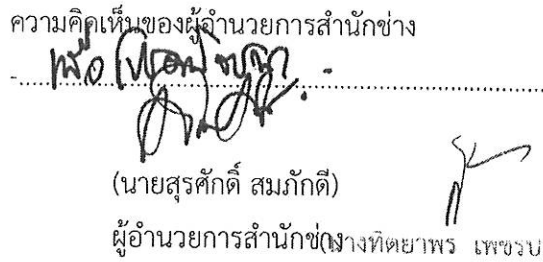 ความคิดเห็นของผู้อำนวยการสำนักช่าง
- เพื่อโปรดพิจารณา
(นายสุรศักดิ์ สมภักดี)
ผู้อำนวยการสำนักช่าง
(นางทิตยาพร เพชรบ